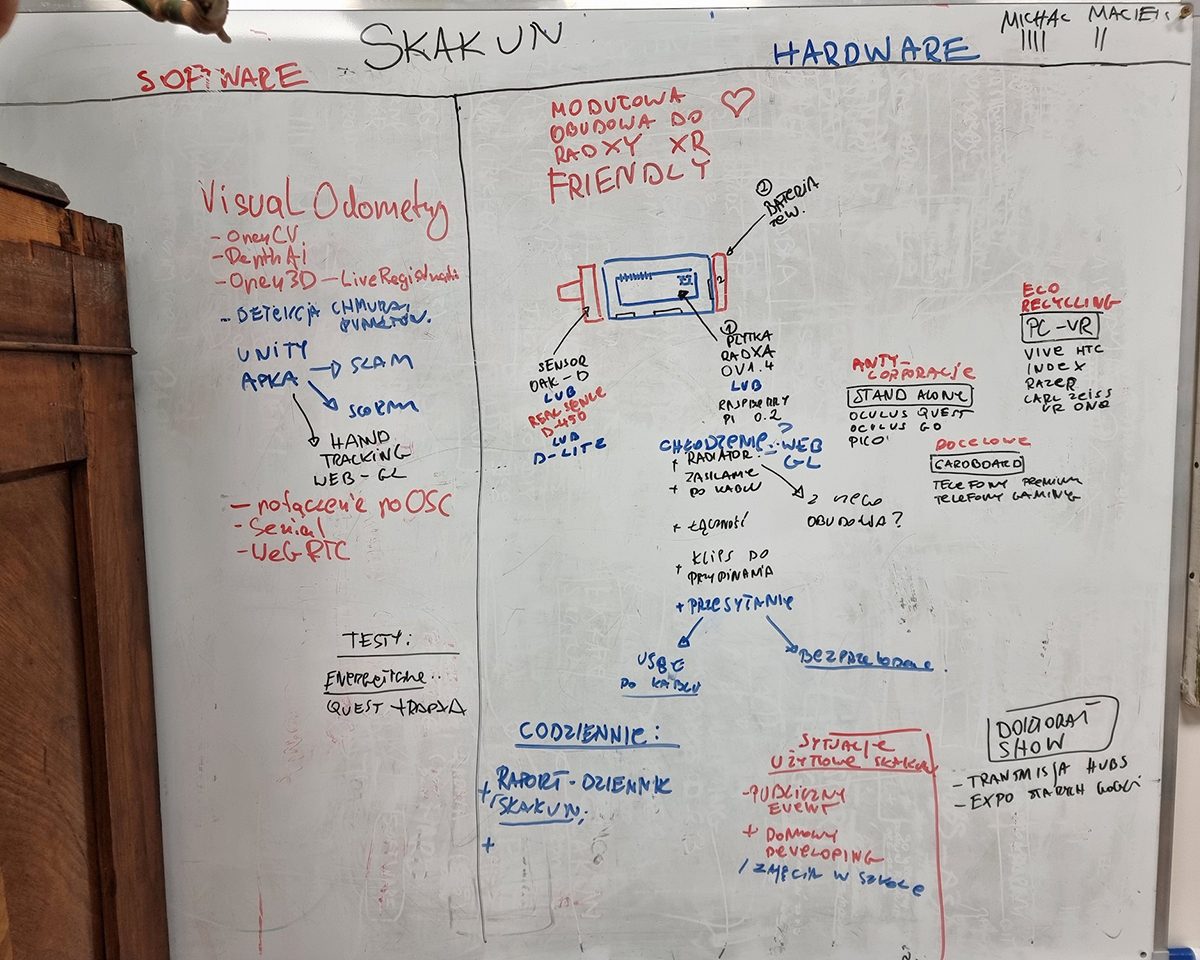 SKAKUN
MICHAŁ MACIEJ
SOFTWARE
HARDWARE
MODUŁOWA
OBUDOWA DO
RADXY XR
FRIENDLY
Visual Odometry
- OpenCV
- DepthAi
- Open3D - Live
- DETEKCJA CHMURA,
PUNKTÓW.
UNITY
APKA
SLAM
HAND
TRACKING
WEB-GL
- połączenie po OSC
- Serial
- WebRTC
TESTY:
ENERGETYCZNE..
QUEST + RADXA
② BATERIA
ZEW.
2
SENSOR
OAK-D
LUB
REALSENSE
D-450
LUB
D-LITE
①
PŁYTKA
RADXA
0V1.4
LUB
RASPBERRY
PI 0.2
?
CHŁODZENIE: WEB
GL
+ RADIATOR
+ ZASILANIE
PO KABLU
Z NIEGO
OBUDOWA?
+ ŁĄCZNOŚĆ
+ KLIPS DO
PRZYPINANIA
+ PRZESYŁANIE
USB C
PO KABLU
BEZPRZEWODOWE.
ANTY-
CORPORACJE
STAND ALONY
OCULUS QUEST
OCULUS GO
PICO
ECO
RECYCLING
PC-VR
VIVE HTC
INDEX
RAZER
CARL ZEISS
VR ONE
DOCELOWE
CARDBOARD
TELEFONY PREMIUM
TELEFONY GAMING
CODZIENNIE:
+ RAPORT-DZIENNIK
SKAKUN;
+
SYTUACJE
UŻYTKOWE SKAKUN
- PUBLICZNY
EVENT
+ DOMOWY
DEVELOPING
/ ZAJĘCIA W SZKOLE
DOKTORAT
SHOW
- TRANSMISJA HUBS
- EXPO STARYCH GOGLI